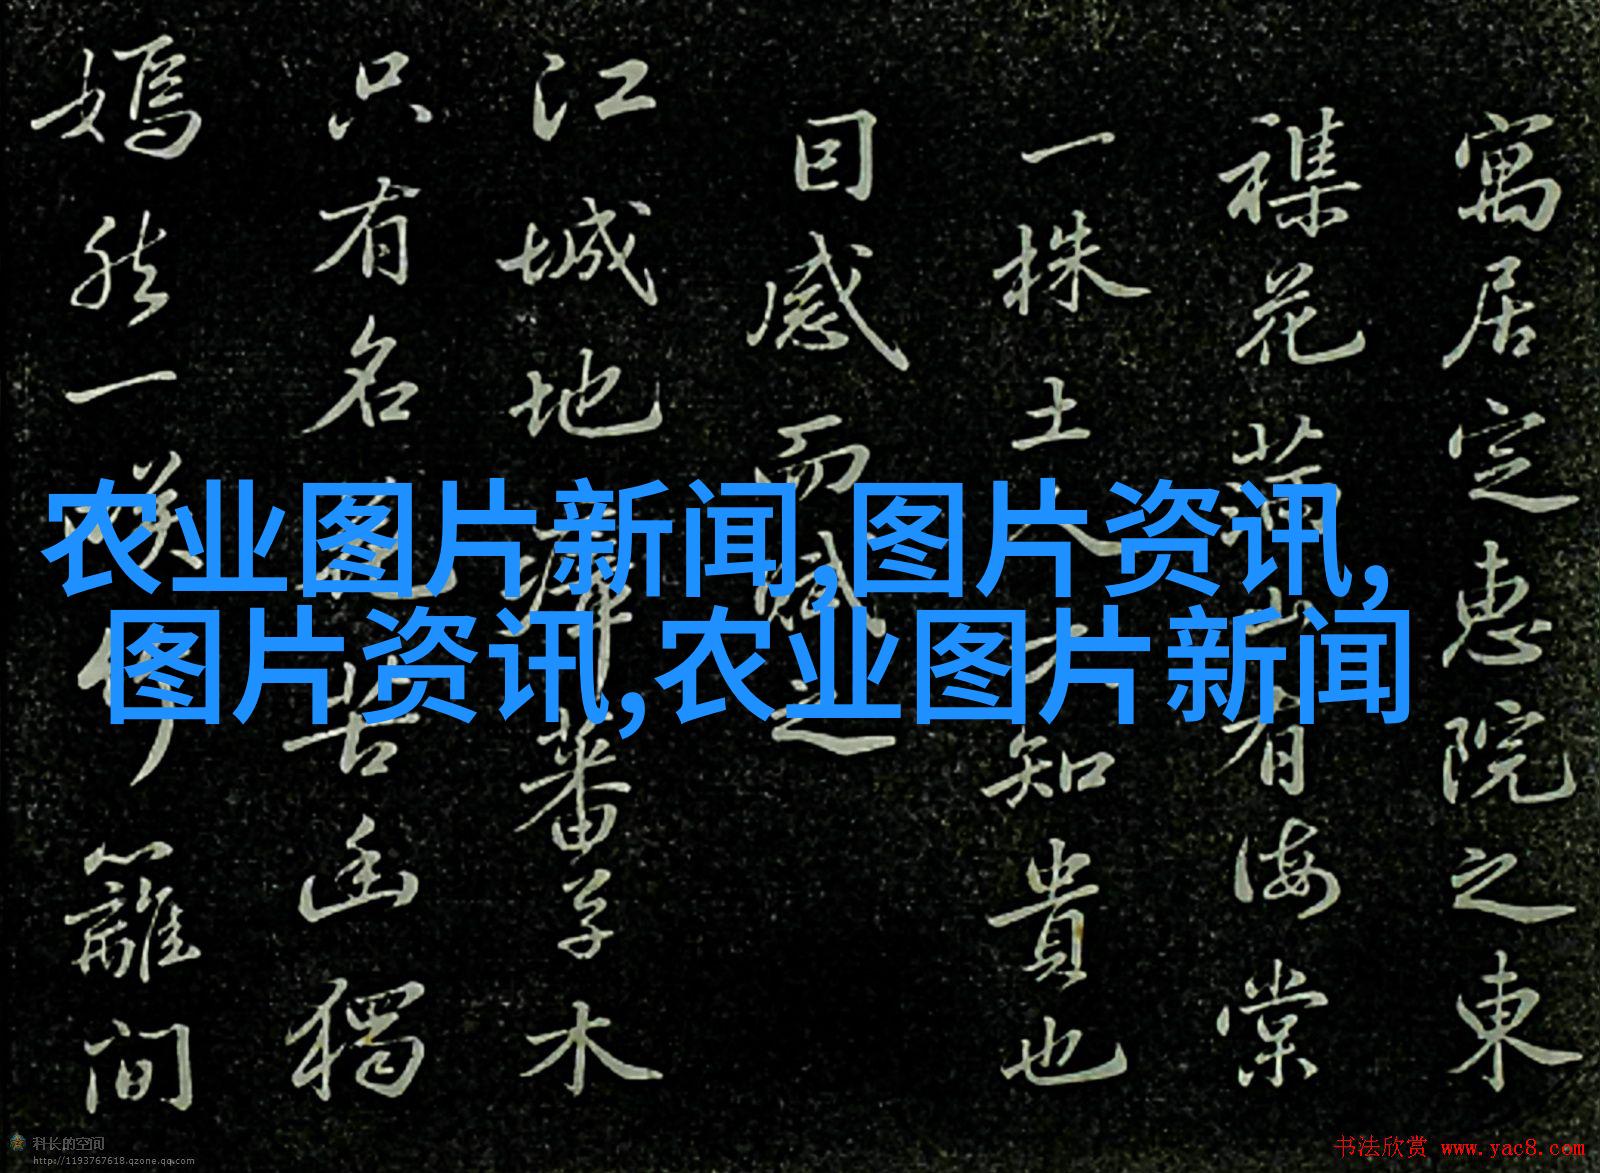 寓居定惠院之東
襍花滿山有海棠
一株土人不知貴也
因感而賦之
江城地瘴蕃草木
只有名花苦幽獨
嫣然一笑竹籬間
农业图片新闻,图片资讯,
图片资讯,农业图片新闻
科长的空间
http://1193767618.qzone.qq.com
书法欣赏 www.yac8.com